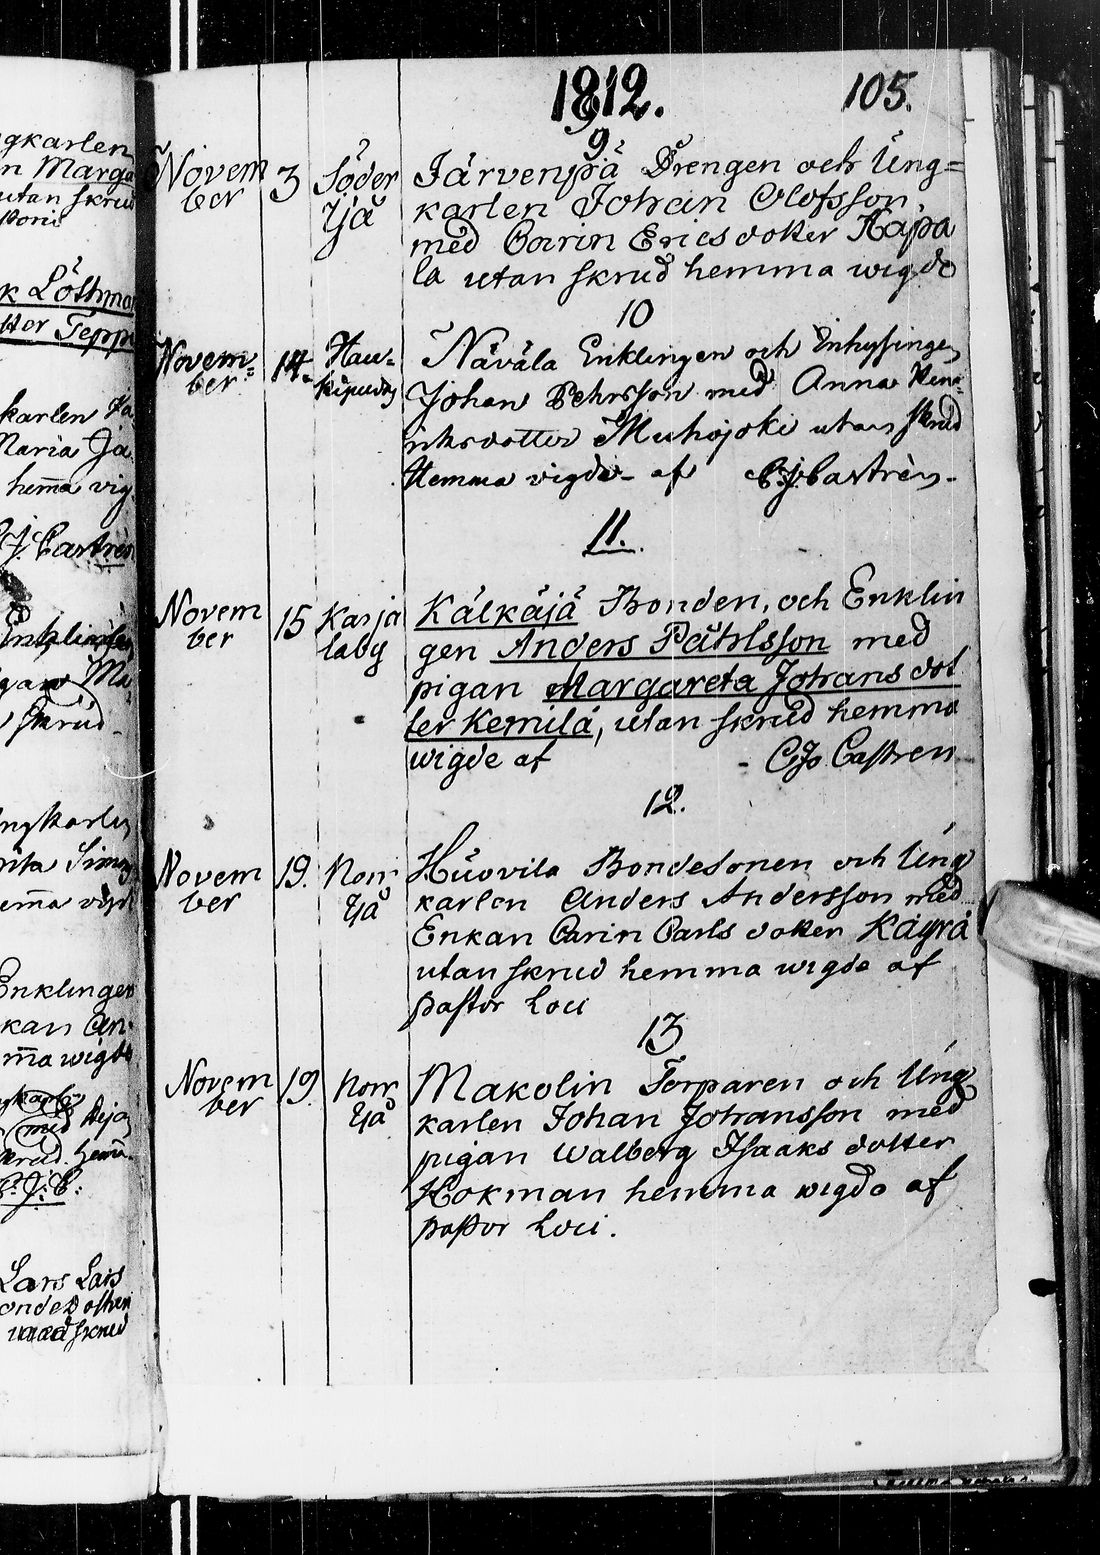 gkarlen
n Marga
utan skrud
storis
k Löthman
tter Tepp
karlen
Maria Ja
hem̄a vig
C J. Castrén
Enklingen
Ma
Skrud
rita Simo
em̄a vigd
Enklingen
kan An
m̄a wigde
med
skrud. hem̄
C: J: C:
Lars Lars
skrud
1812.
105.
9
Novem
ber
3
Söder
Ijå
Järvenpä Drengen och Ung=
karlen Johan Olofsson,
med Carin Erics dotter Kapa
la utan skrud hemma wigde
10
Novem=
ber
14.
Hau=
kipudas
Näväla Enklingen och Inhysingen
Johan Pehrsson med Anna Hen=
riksdotter Muhojoki utan skrud
Hemma vigde af C J Castrén.
11.
Novem
ber
15
Karja
laby
Kälkäjä Bonden, och Enklin
gen Anders Påhlsson med
pigan Margareta Johans dot
ter Kemilä, utan skrud hemma
wigde af - CJo Castren
12.
Novem
ber
19.
Norr
Ijå
Huovila Bondesonen och Ung
karlen Anders Andersson med
Enkan Carin Carls dotter Käyrä
utan skrud hemma wigde af
pastor Loci
13
Novem
ber
19.
Norr
Ijå
Makolin Torparen och Ung
karlen Johan Johansson med
pigan Walborg Isaaks dotter
Hokman hemma wigde af
pastor Loci.